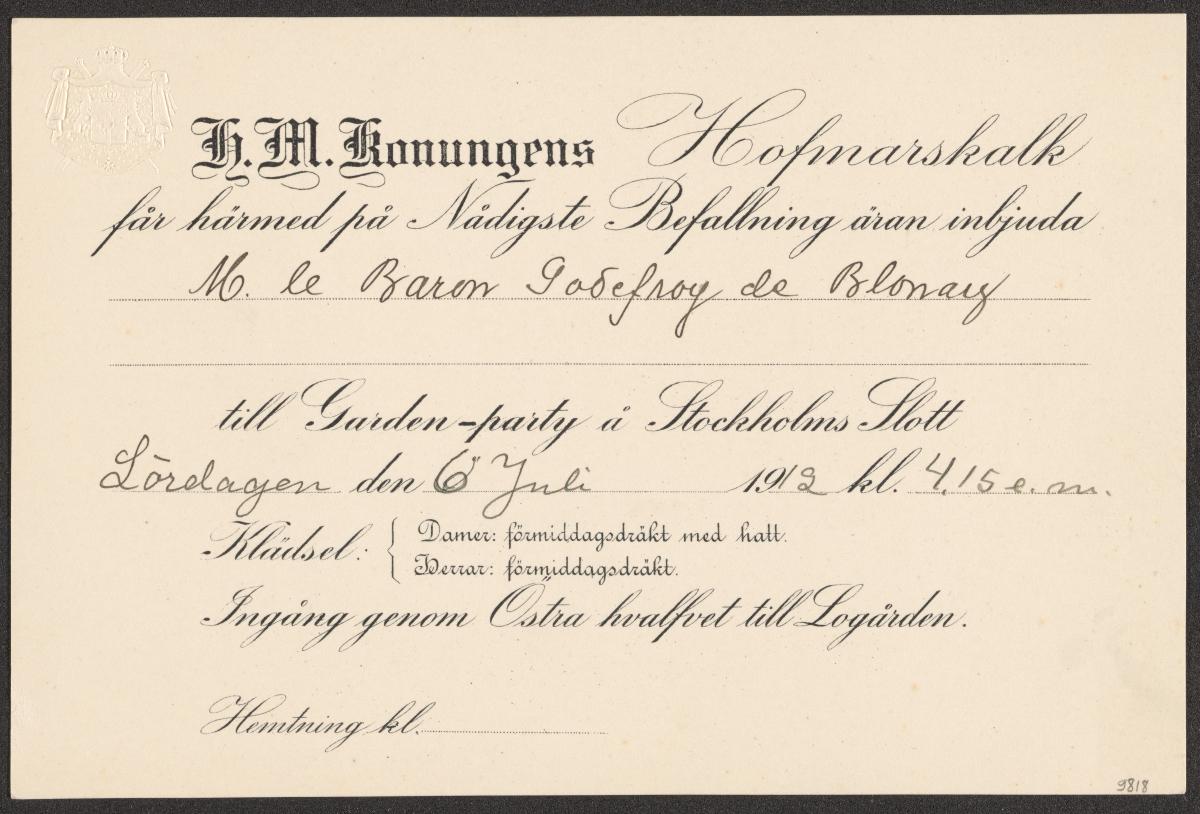 H. M. Konungens Hofmarskalk
får härmed på Nådigste Befallning äran inbjuda
M. le Baron Godefroy de Blonay
till Garden-party å Stockholms Slott
Lördagen den 6 Juli 1912 kl. 4,15 e. m.
Klädsel: { Damer: förmiddagsdräkt med hatt.
Herrar: förmiddagsdräkt.
Ingång genom Östra hvalfvet till Logården.
Hemtning kl.
9818